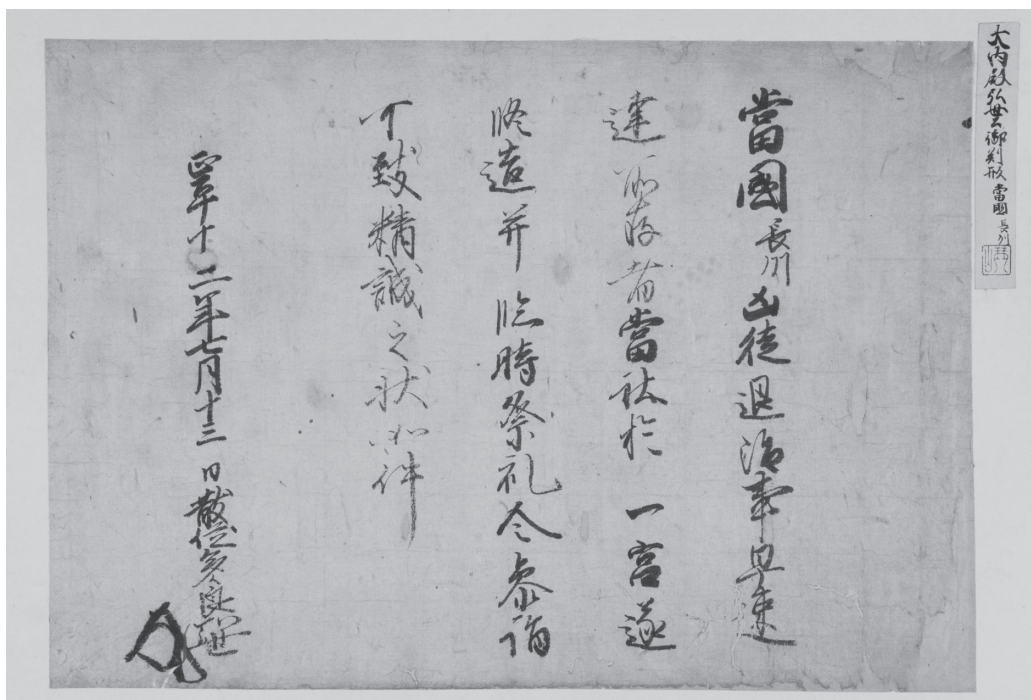 大内殿弘世公御判形 當國 長州
當國長州凶徒退治事早速
達所存者當社於一宮遂
修造并臨時祭礼令參詣
可致精誠之状如件
正平十二年七月十三日散位多々良弘世